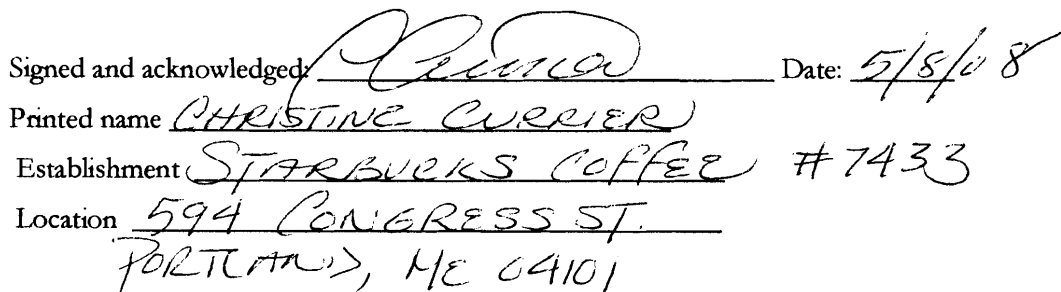 Signed and acknowledged: Date: 5/8/08
Printed name CHRISTINE CURRIER
Establishment STARBUCKS COFFEE #7433
Location 594 CONGRESS ST.
PORTLAND, ME 04101